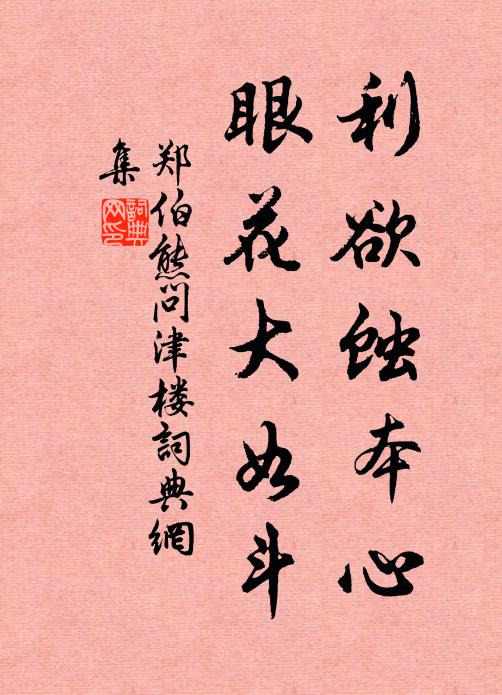 利欲蚀本心
眼花大如斗
郑伯熊问津楼词典網
集
詞典
网印